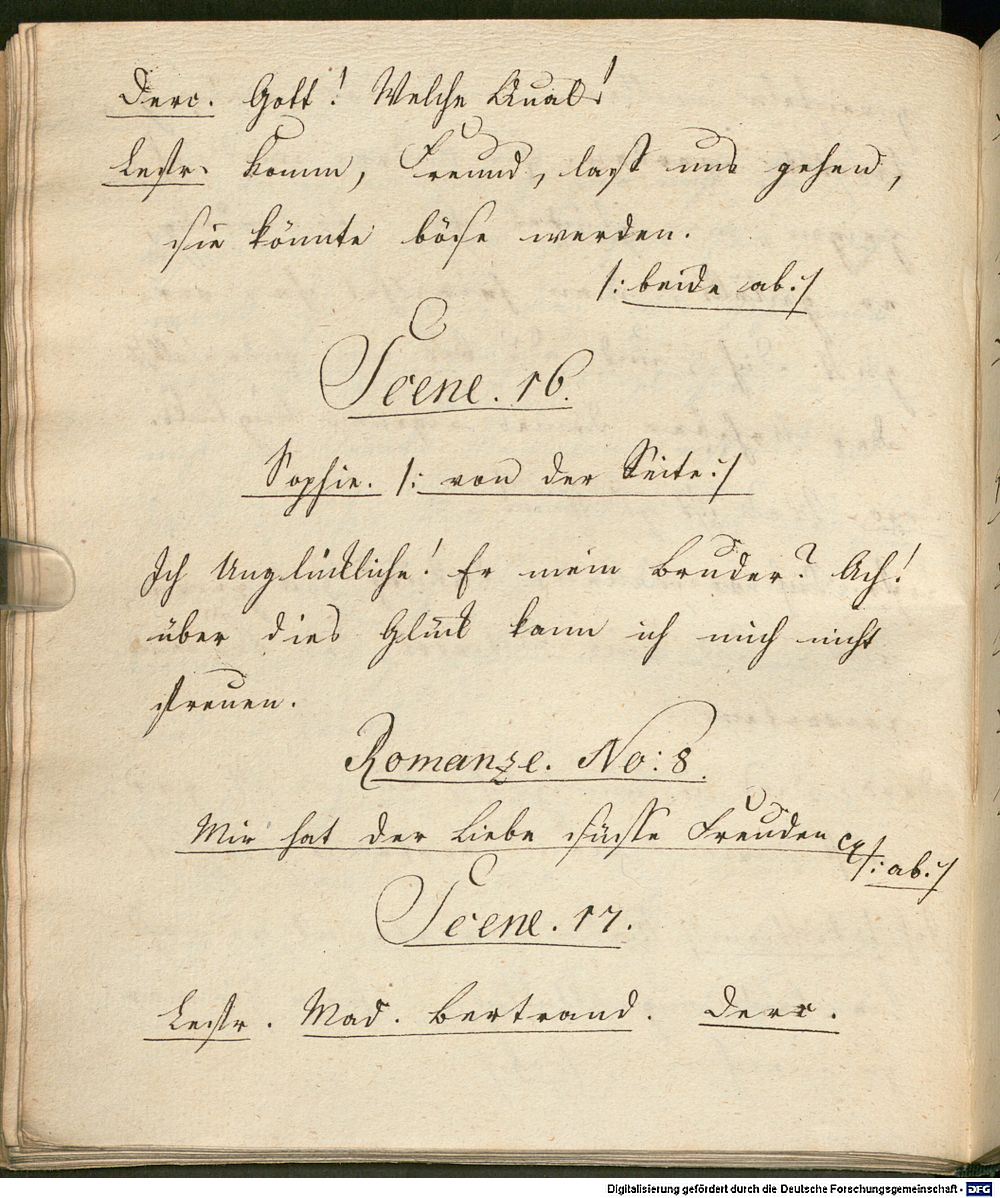 Derc. Gott! Welche Qual!
Lestr. Komm, Freund, lasst uns gehen,
sie könnte böse werden.
/: beide ab :/
Scene. 16.
Sophie. /: von der Seite :/
Ich Unglückliche! Er mein Bruder? Ach!
über dies Glück kann ich mich nicht
freuen.
Romanze. No: 8.
Mir hat der Liebe süsse Freuden /: ab. :/
Scene. 17.
Lestr. Mad. Bertrand. Derc.
Digitalisierung gefördert durch die Deutsche Forschungsgemeinschaft - DFG